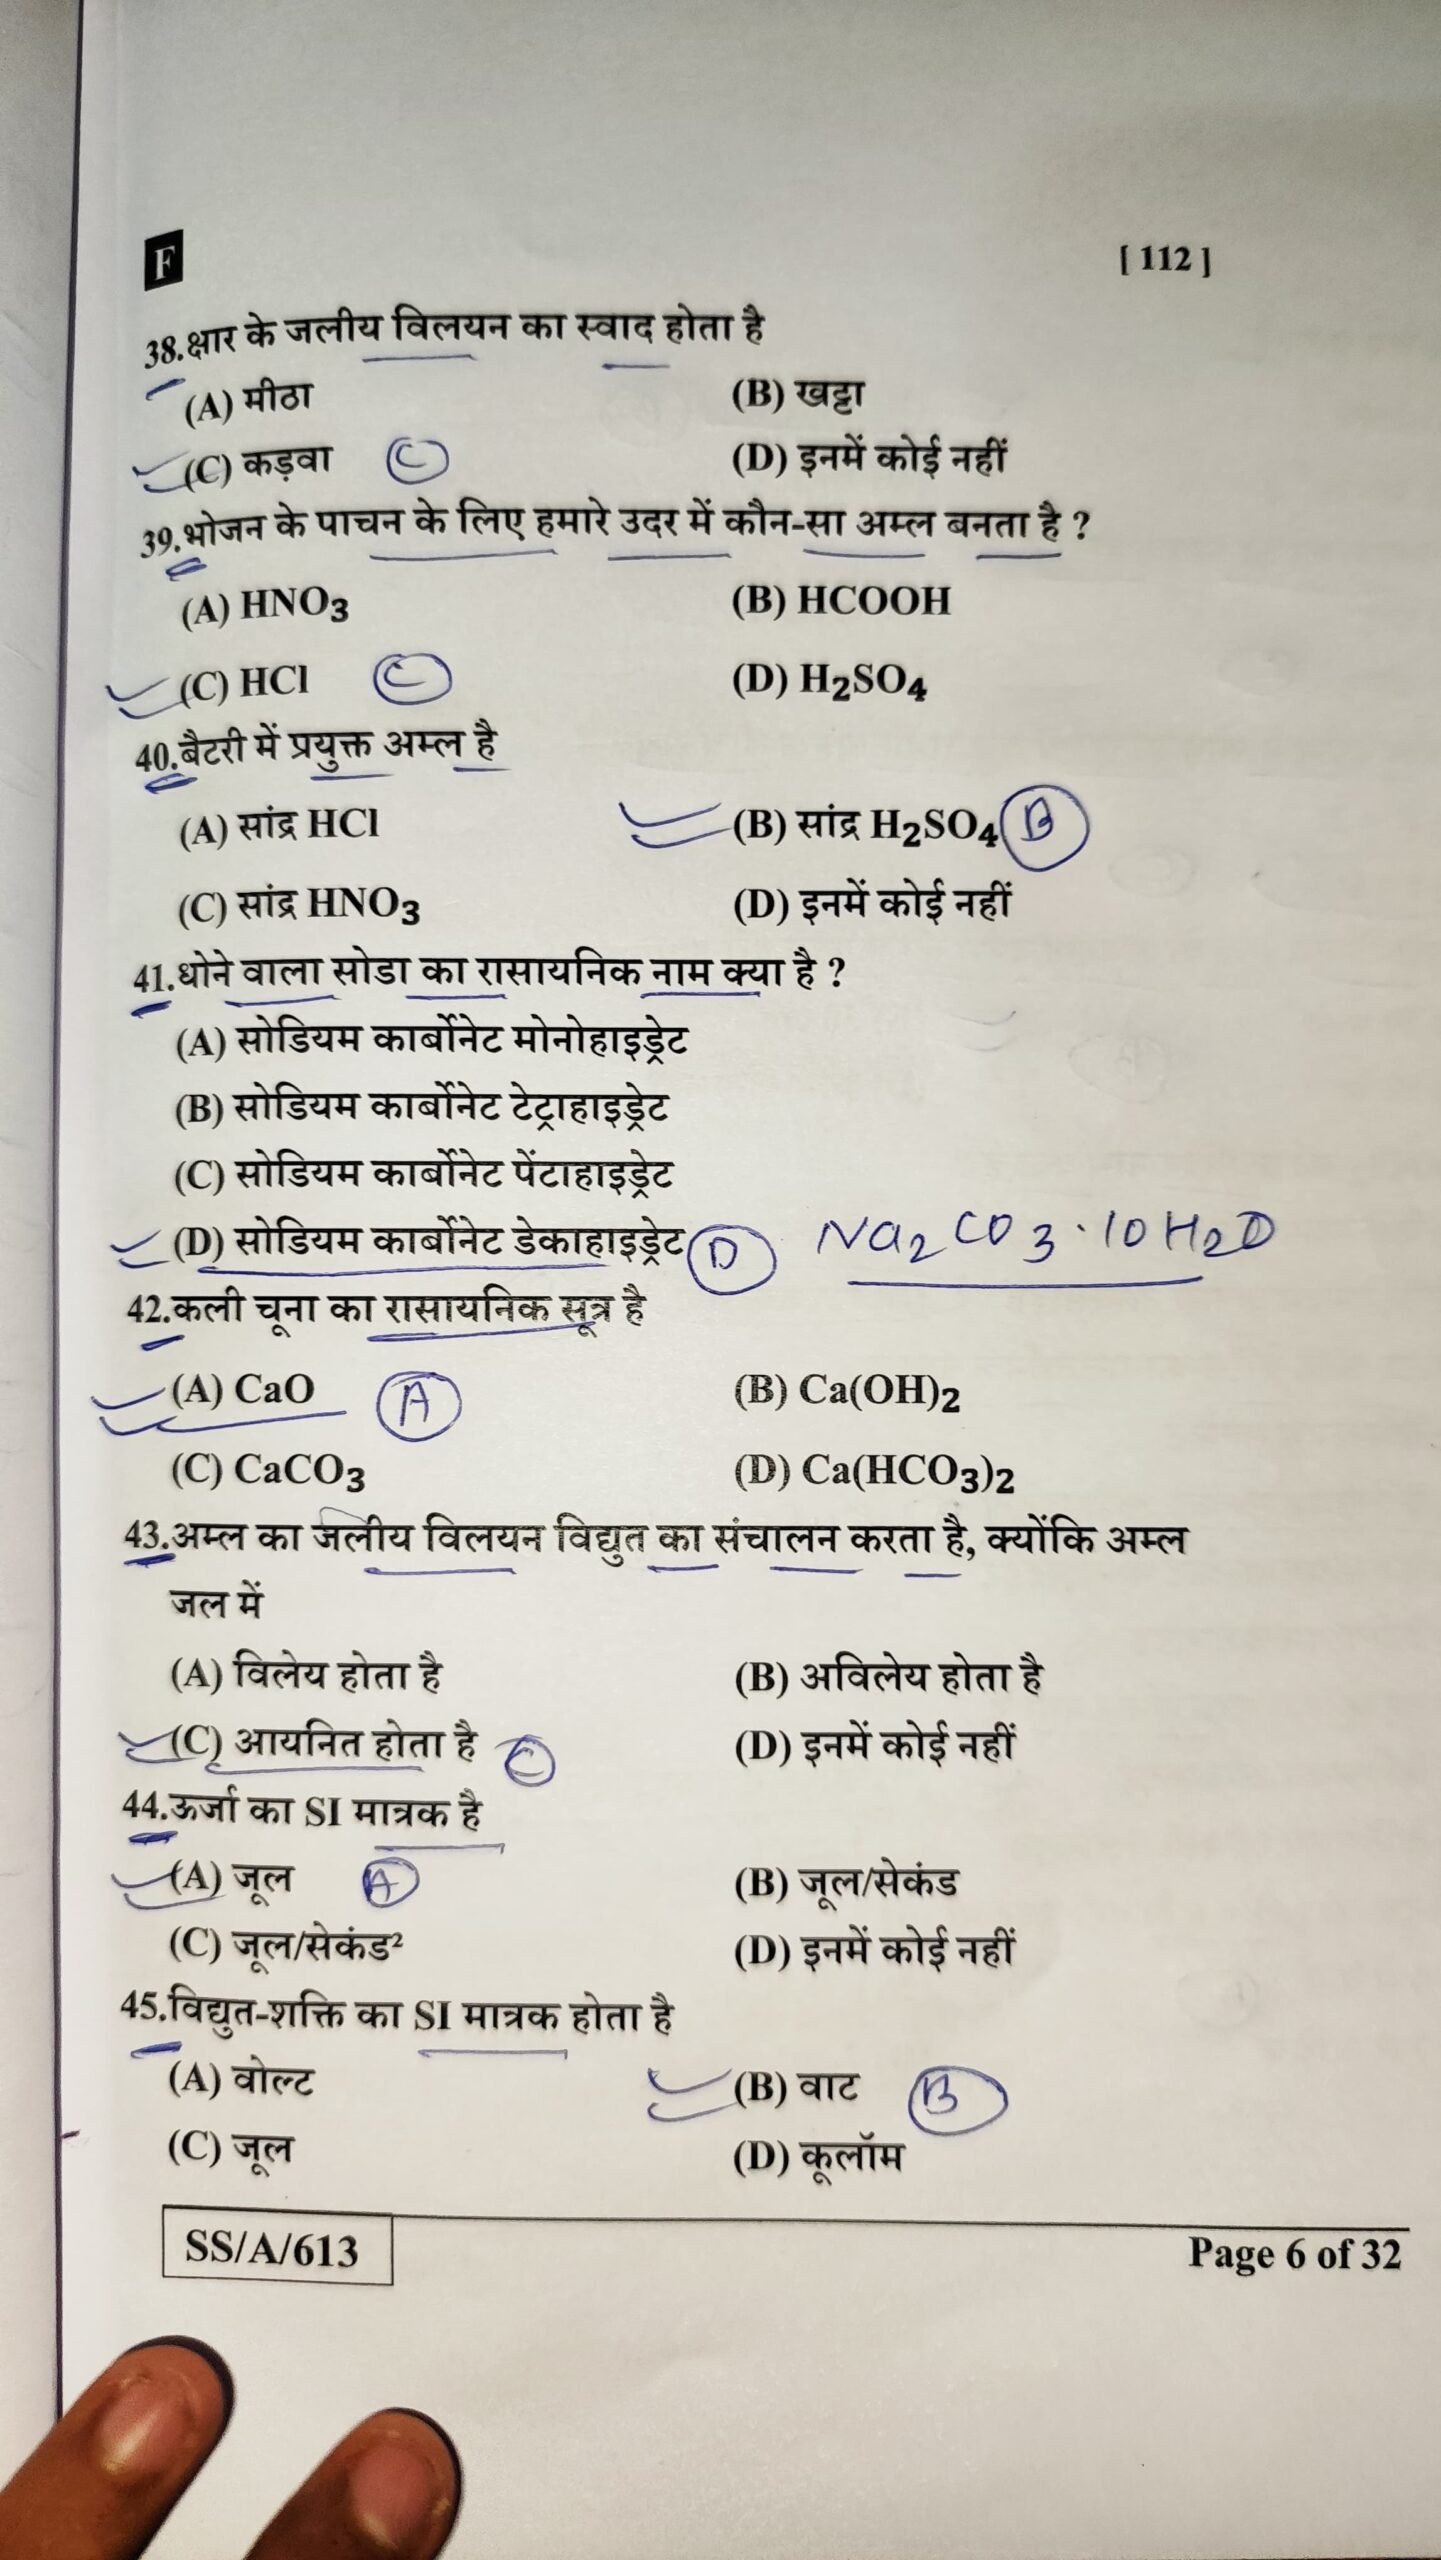 F [ 112 ]
38.क्षार के जलीय विलयन का स्वाद होता है
(A) मीठा (B) खट्टा
(C) कड़वा C (D) इनमें कोई नहीं
39.भोजन के पाचन के लिए हमारे उदर में कौन-सा अम्ल बनता है ?
(A) HNO3 (B) HCOOH
(C) HCl C (D) H2SO4
40.बैटरी में प्रयुक्त अम्ल है
(A) सांद्र HCl (B) सांद्र H2SO4 B
(C) सांद्र HNO3 (D) इनमें कोई नहीं
41.धोने वाला सोडा का रासायनिक नाम क्या है ?
(A) सोडियम कार्बोनेट मोनोहाइड्रेट
(B) सोडियम कार्बोनेट टेट्राहाइड्रेट
(C) सोडियम कार्बोनेट पेंटाहाइड्रेट
(D) सोडियम कार्बोनेट डेकाहाइड्रेट D Na2CO3·10H2O
42.कली चूना का रासायनिक सूत्र है
(A) CaO A (B) Ca(OH)2
(C) CaCO3 (D) Ca(HCO3)2
43.अम्ल का जलीय विलयन विद्युत का संचालन करता है, क्योंकि अम्ल
जल में
(A) विलेय होता है (B) अविलेय होता है
(C) आयनित होता है C (D) इनमें कोई नहीं
44.ऊर्जा का SI मात्रक है
(A) जूल A (B) जूल/सेकंड
(C) जूल/सेकंड² (D) इनमें कोई नहीं
45.विद्युत-शक्ति का SI मात्रक होता है
(A) वोल्ट (B) वाट B
(C) जूल (D) कूलॉम
SS/A/613 Page 6 of 32